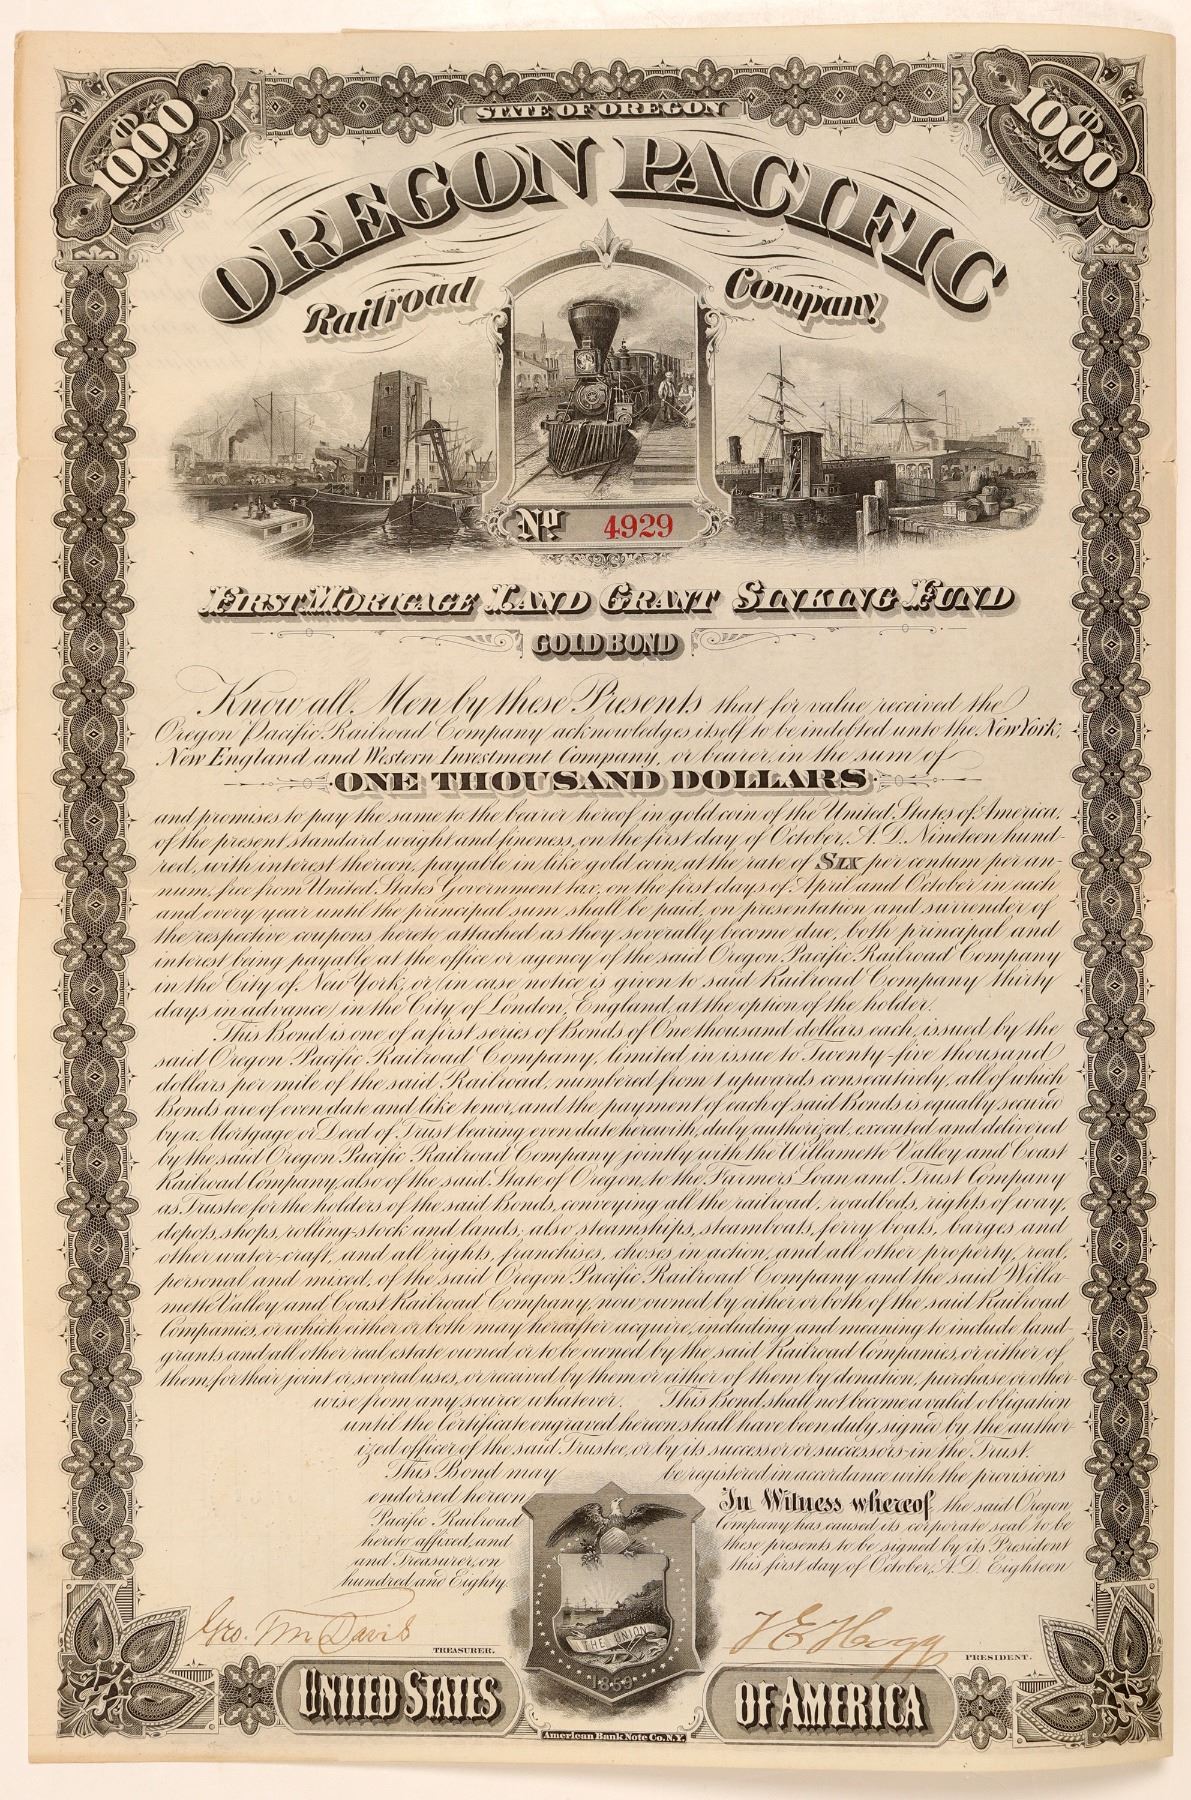 1000
STATE OF OREGON
1000
OREGON PACIFIC
Railroad Company
No 4929
FIRST MORTGAGE LAND GRANT SINKING FUND
GOLD BOND
Know all Men by these Presents that for value received the
Oregon Pacific Railroad Company acknowledges itself to be indebted unto the New York,
New England and Western Investment Company, or bearer, in the sum of
ONE THOUSAND DOLLARS
and promises to pay the same to the bearer hereof in gold coin of the United States of America,
of the present standard weight and fineness, on the first day of October, A.D. Nineteen hund-
red, with interest thereon, payable in like gold coin, at the rate of SIX per centum per an-
num, free from United States Government tax, on the first days of April and October in each
and every year until the principal sum shall be paid, on presentation and surrender of
the respective coupons hereto attached as they severally become due, both principal and
interest being payable at the office or agency of the said Oregon Pacific Railroad Company
in the City of New York, or (in case notice is given to said Railroad Company thirty
days in advance) in the City of London, England, at the option of the holder.
This Bond is one of a first series of Bonds of One thousand dollars each, issued by the
said Oregon Pacific Railroad Company, limited in issue to Twenty-five thousand
dollars per mile of the said Railroad, numbered from 1 upwards consecutively, all of which
Bonds are of even date and like tenor, and the payment of each of said Bonds is equally secured
by a Mortgage or Deed of Trust bearing even date herewith, duly authorized, executed and delivered
by the said Oregon Pacific Railroad Company jointly with the Willamette Valley and Coast
Railroad Company, also of the said State of Oregon, to the Farmers' Loan and Trust Company
as Trustee for the holders of the said Bonds, conveying all the railroad, roadbeds, rights of way,
depots, shops, rolling-stock and lands; also steamships, steamboats, ferry boats, barges and
other water-craft, and all rights, franchises, choses in action, and all other property, real,
personal and mixed, of the said Oregon Pacific Railroad Company and the said Willa-
mette Valley and Coast Railroad Company, now owned by either or both of the said Railroad
Companies, or which either or both may hereafter acquire, including and meaning to include land-
grants and all other real estate owned or to be owned by the said Railroad Companies, or either of
them, for their joint or several uses, or received by them or either of them by donation, purchase or other-
wise from any source whatever. This Bond shall not become a valid obligation
until the Certificate engraved hereon shall have been duly signed by the author-
ized officer of the said Trustee, or by its successor or successors in the Trust.
This Bond may be registered in accordance with the provisions
endorsed hereon In Witness whereof, the said Oregon
Pacific Railroad Company has caused its corporate seal to be
hereto affixed, and these presents to be signed by its President
and Treasurer, on this first day of October, A.D. Eighteen
hundred and Eighty.
THE UNION
1859
Geo. Wm Davis
TREASURER.
T E Hogg
PRESIDENT.
UNITED STATES
OF AMERICA
American Bank Note Co. N.Y.